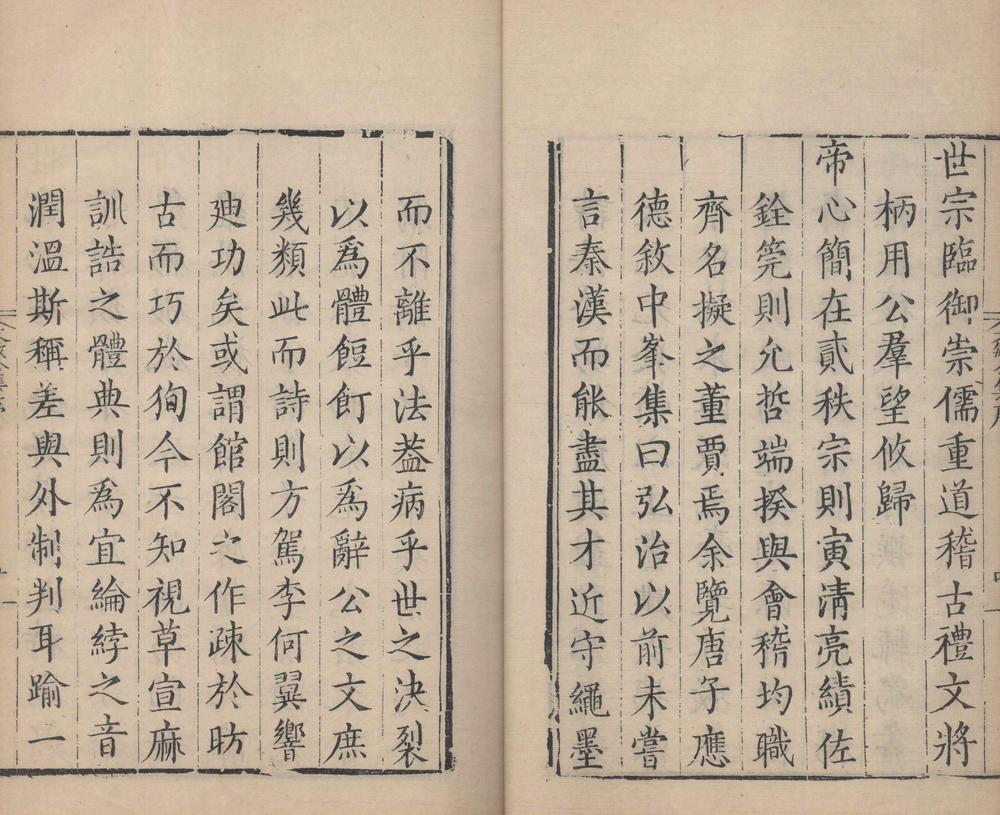 世宗臨御崇儒重道稽古禮文將
柄用公羣望攸歸
帝心簡在貳秩宗則寅清亮績佐
銓筦則允哲端揆與會稽均職
齊名擬之董賈焉余覽唐子應
德敘中峯集曰弘治以前未嘗
言秦漢而能盡其才近守繩墨
而不離乎法葢病乎世之決裂
以爲體餖飣以爲辭公之文庶
幾類此而詩則方駕李何翼響
廸功矣或謂館閣之作疎於昉
古而巧於徇今不知視草宣麻
訓誥之體典則爲宜綸綍之音
潤溫斯稱差與外制判耳踰一